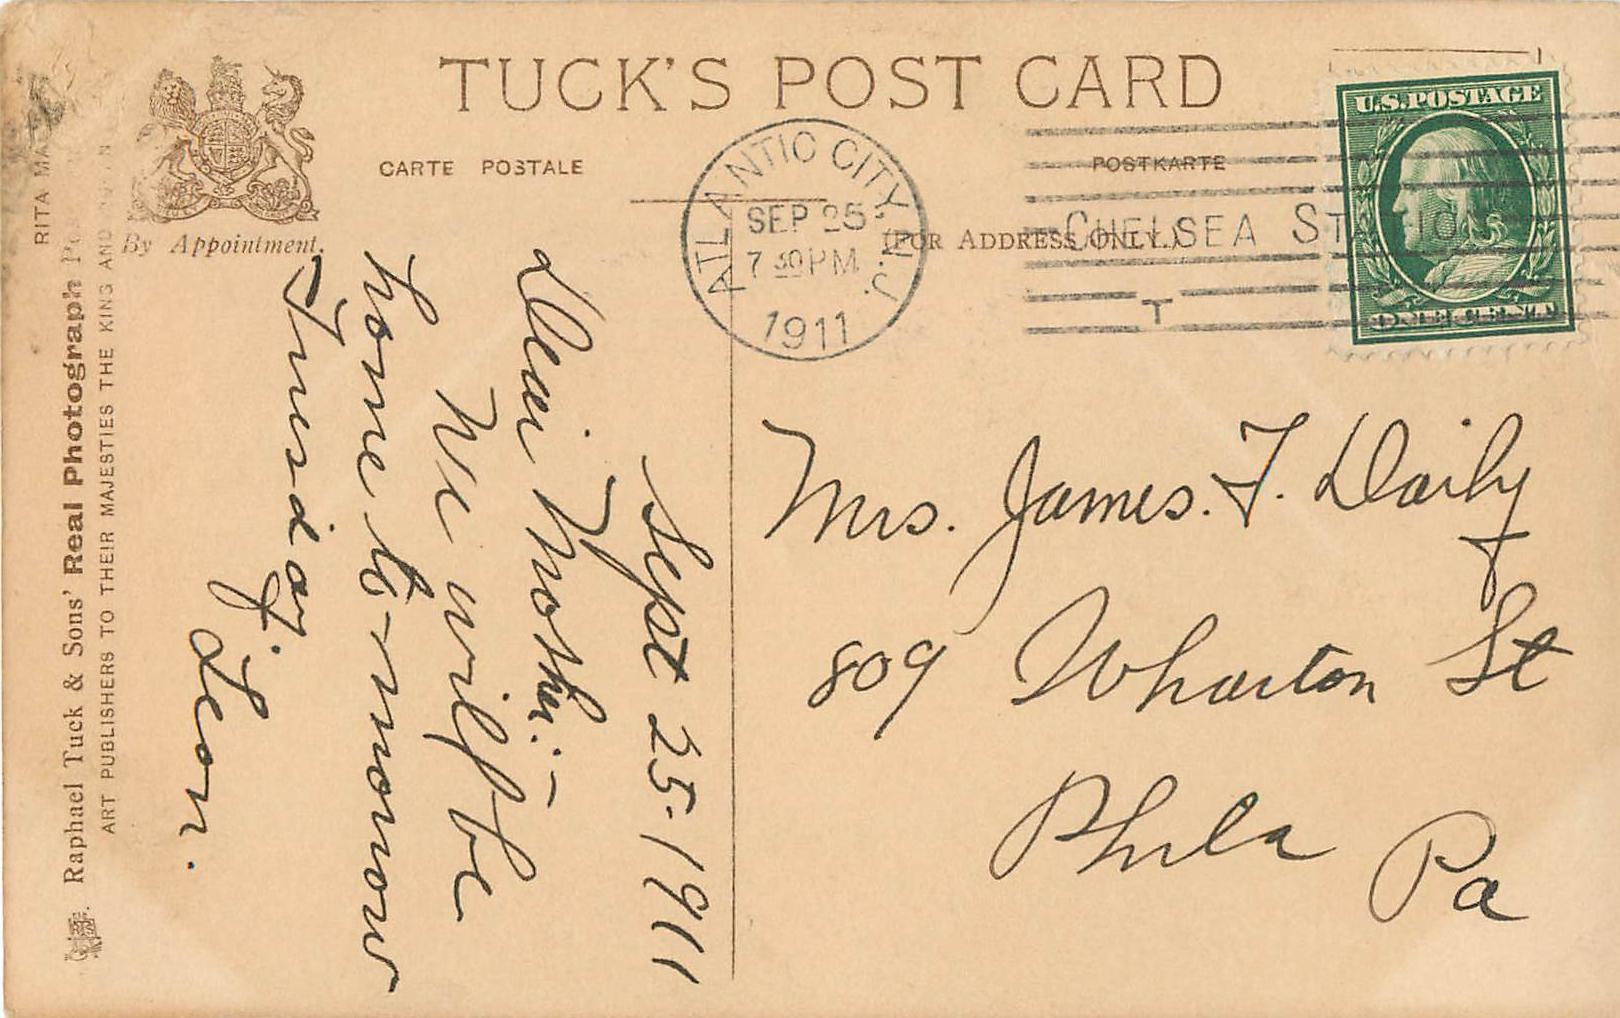 TUCK'S POST CARD
CARTE POSTALE
POSTKARTE
(FOR ADDRESS ONLY.)
By Appointment.
RITA MA
Raphael Tuck & Sons' Real Photograph Po
ART PUBLISHERS TO THEIR MAJESTIES THE KING AND
ATLANTIC CITY, N.J.
SEP 25
7 30 PM
1911
CHELSEA STATION
T
U.S. POSTAGE
ONE CENT
Sept 25-1911
Dear Mother:-
We will be
home to-morrow
Tuesday.
Leon.
Mrs. James. F. Daily
809 Wharton St
Phila
Pa